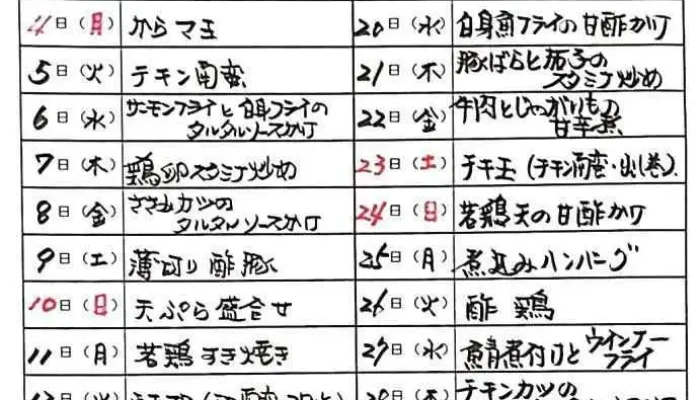 4日(月) からマ玉
5日(火) チキン南蛮
6日(水) サーモンフライと白身フライの
タルタルソースかけ
7日(木) 鶏卵スタミナ炒め
8日(金) ささみカツの
タルタルソースかけ
9日(土) 薄切り酢豚
10日(日) 天ぷら盛合せ
11日(月) 若鶏すき焼き
20日(水) 白身魚フライの甘酢かけ
21日(木) 豚ばらと茄子の
スタミナ炒め
22日(金) 牛肉とじゃがいもの
甘辛煮
23日(土) チキ玉(チキン南蛮・出し巻)
24日(日) 若鶏天の甘酢かけ
25日(月) 煮込みハンバーグ
26日(火) 酢鶏
27日(水) 鯖煮付けとウインナー
フライ
チキンカツの